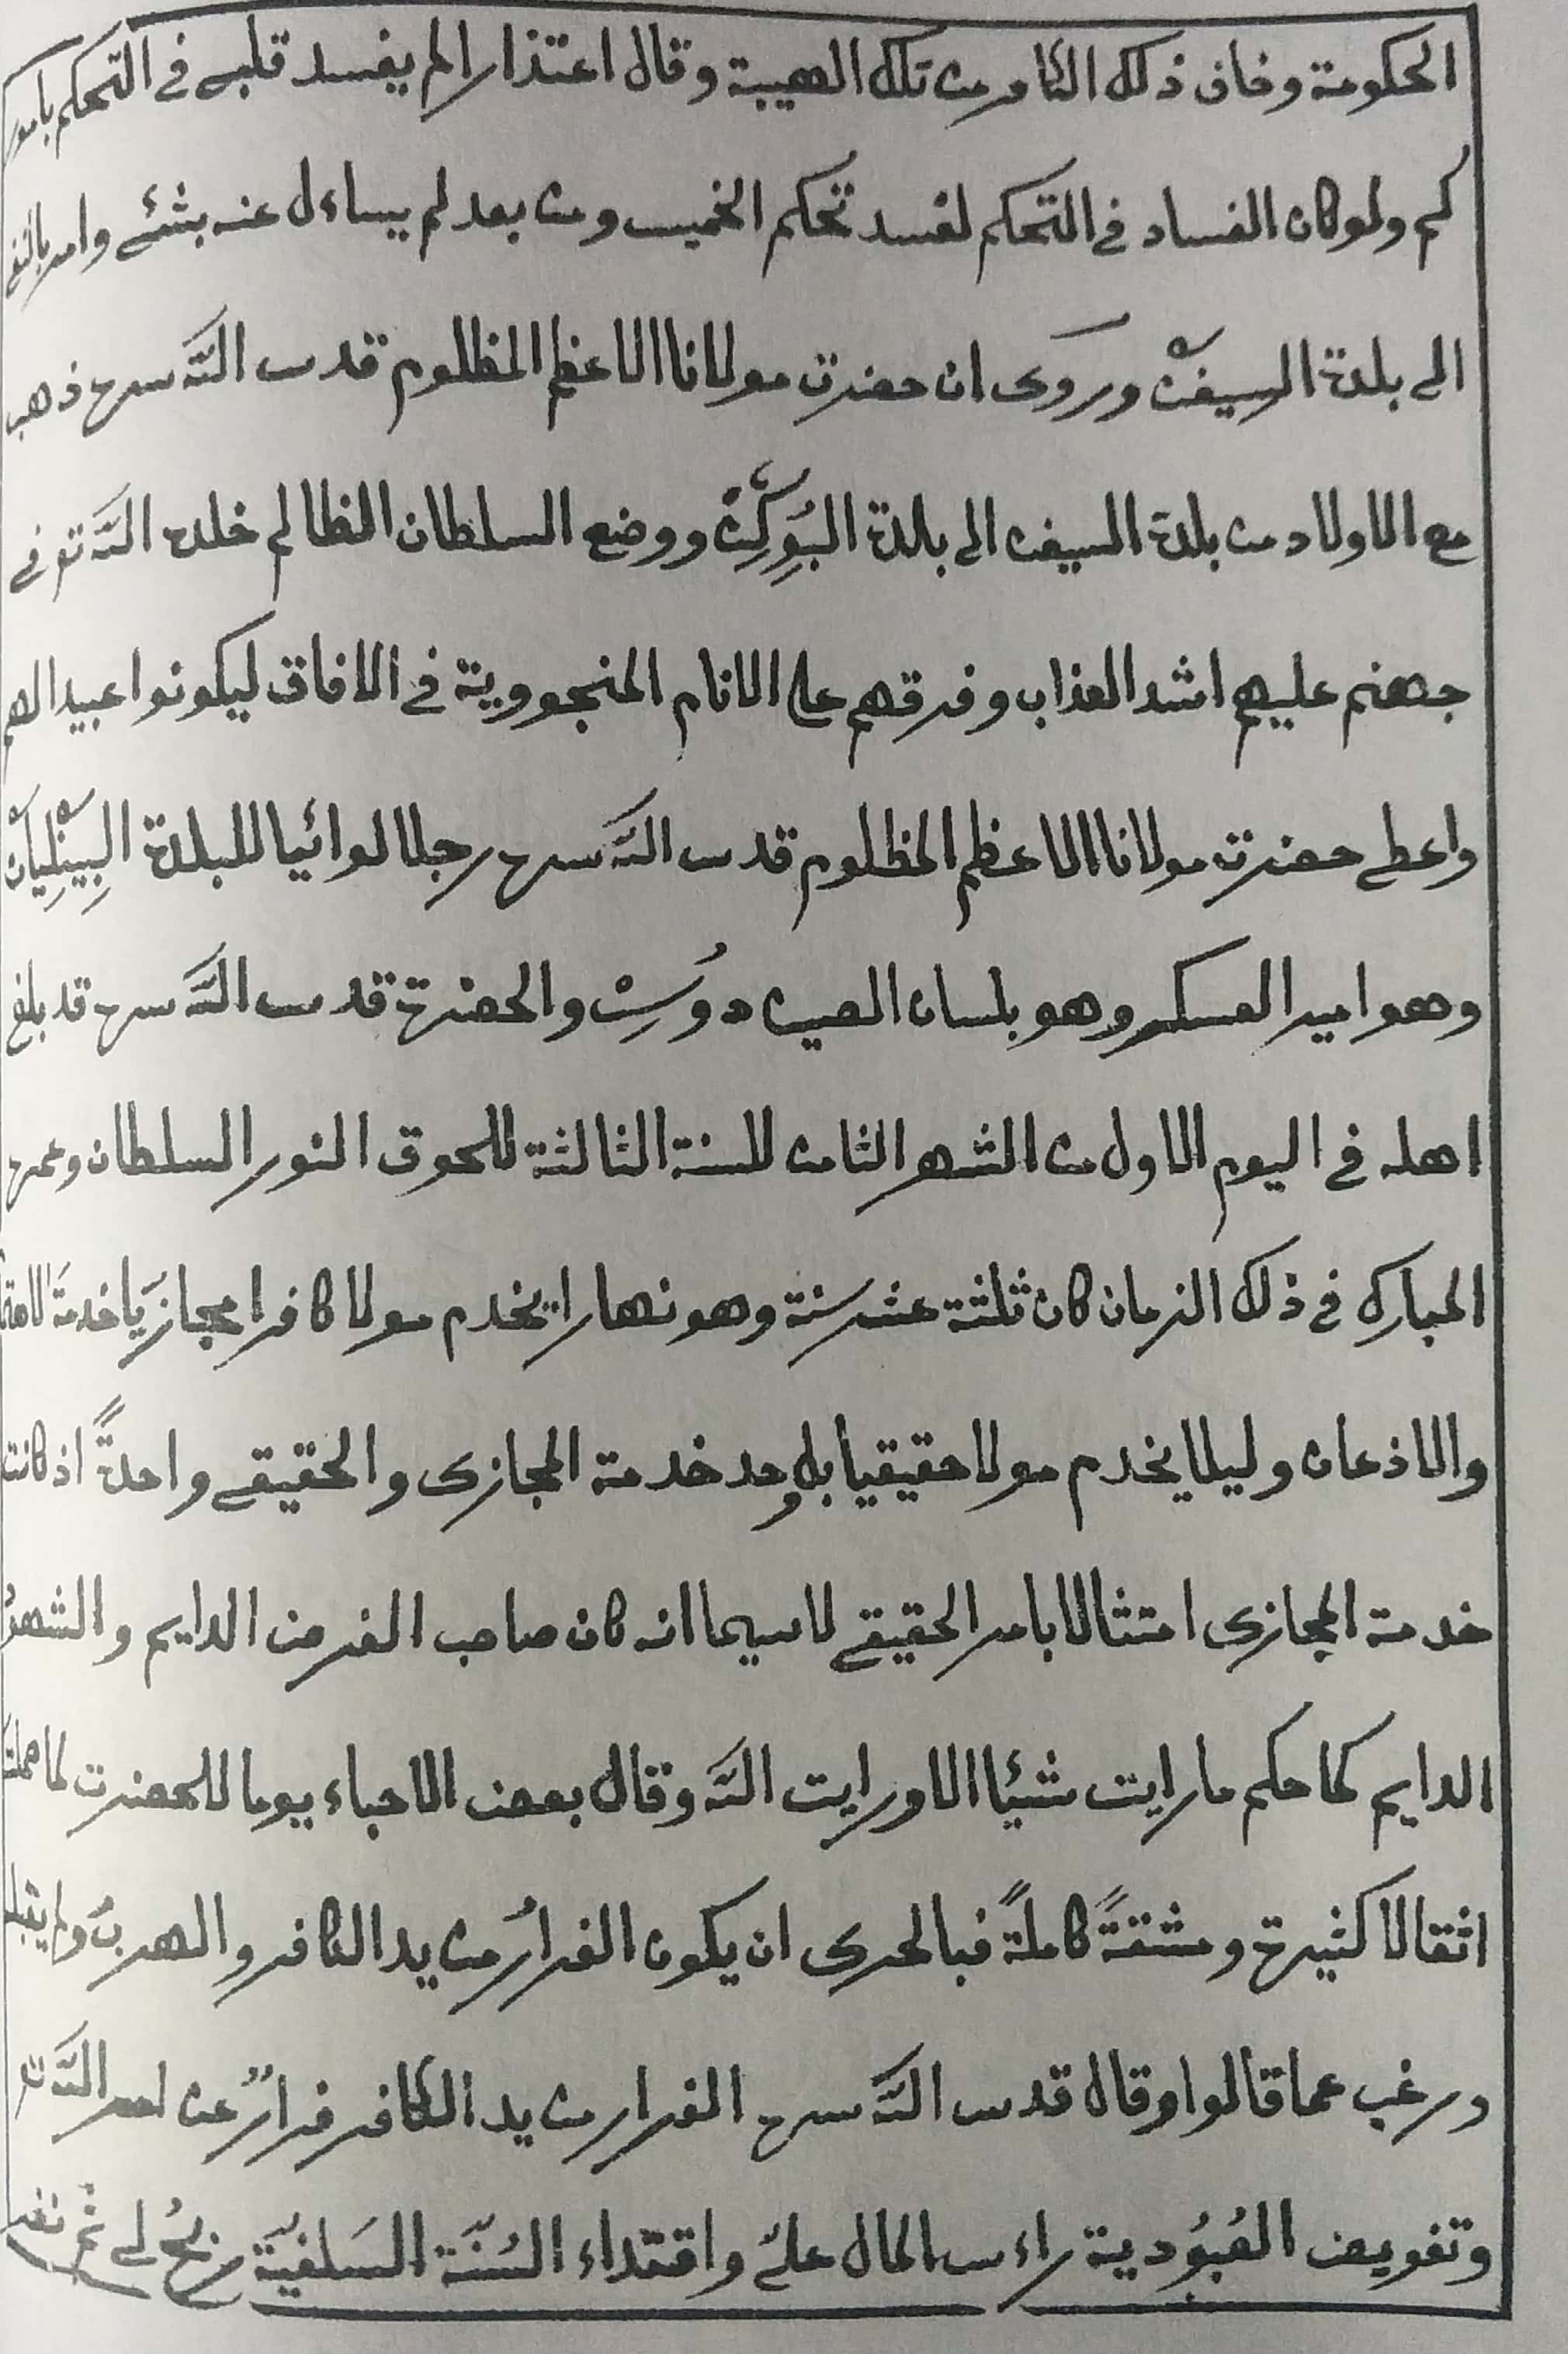 الحكومة وخاف ذلك الكافر من تلك الهيبة وقال اعتذارا لم يفسد قلبي في التحكم بامور
كم ولو كان الفساد في التحكم لفسد تحكم الخميس ومن بعد لم يساءل عنه بشئ وامر بالنفي
الى بلدة السيغن وروى ان حضرت مولانا الاعظم المظلوم قدس الله سره ذهب
مع الاولاد من بلدة السيغن الى بلدة البوكن ووضع السلطان الظالم خلده الله تع في
جهنم عليهم اشد العذاب وفرقهم على الانام المنجووية في الافاق ليكونوا عبيدا لهم
واعطى حضرت مولانا الاعظم المظلوم قدس الله سره رجلا لوائيا للبلدة
وهو امير العسكر وهو بلسان الصين دوست والحضرة قدس الله سره قد بلغ
اهله في اليوم الاول من الشهر الثامن للسنة الثالثة للحوق النور السلطان وعمره
المبارك في ذلك الزمان كان ثلثة عشر سنة وهو نهارا يخدم مولا كافرا مجازيا خدمة
والاذعان وليلا يخدم مولا حقيقيا بل وحد خدمة المجازى والحقيقي واحدة اذ كانت
خدمة المجازى امتثالا بامر الحقيقي لاسيما انه كان صاحب الفرض الدايم والشهو
الدايم كما حكم ما رايت شيئا الا ورايت الله وقال بعض الاحباء يوما للحضرت لما حملت
اثقالا كثيرة ومشقة كاملة فبالحرى ان يكون الفرار من يد الكافر والهرب ولم يقبل
ورغب عما قالوا وقال قدس الله سره الفرار من يد الكافر فرار عن امر الله تع
وتفويض العبودية راءس المال على واقتداء السنة السلفية ربح لي ثم